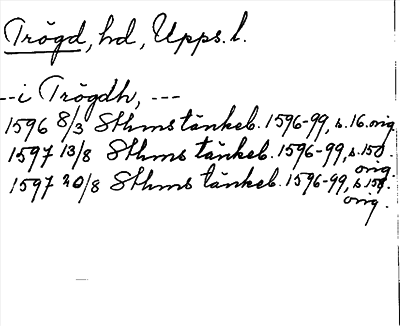 Trögd, hd, Upps. l.
--i Trögdh, ---
1596 8/3 Sthms tänkeb. 1596-99, s. 16. orig.
1597 13/8 Sthms tänkeb. 1596-99, s. 150.
orig.
1597 20/8 Sthms tänkeb. 1596-99, s.
orig.